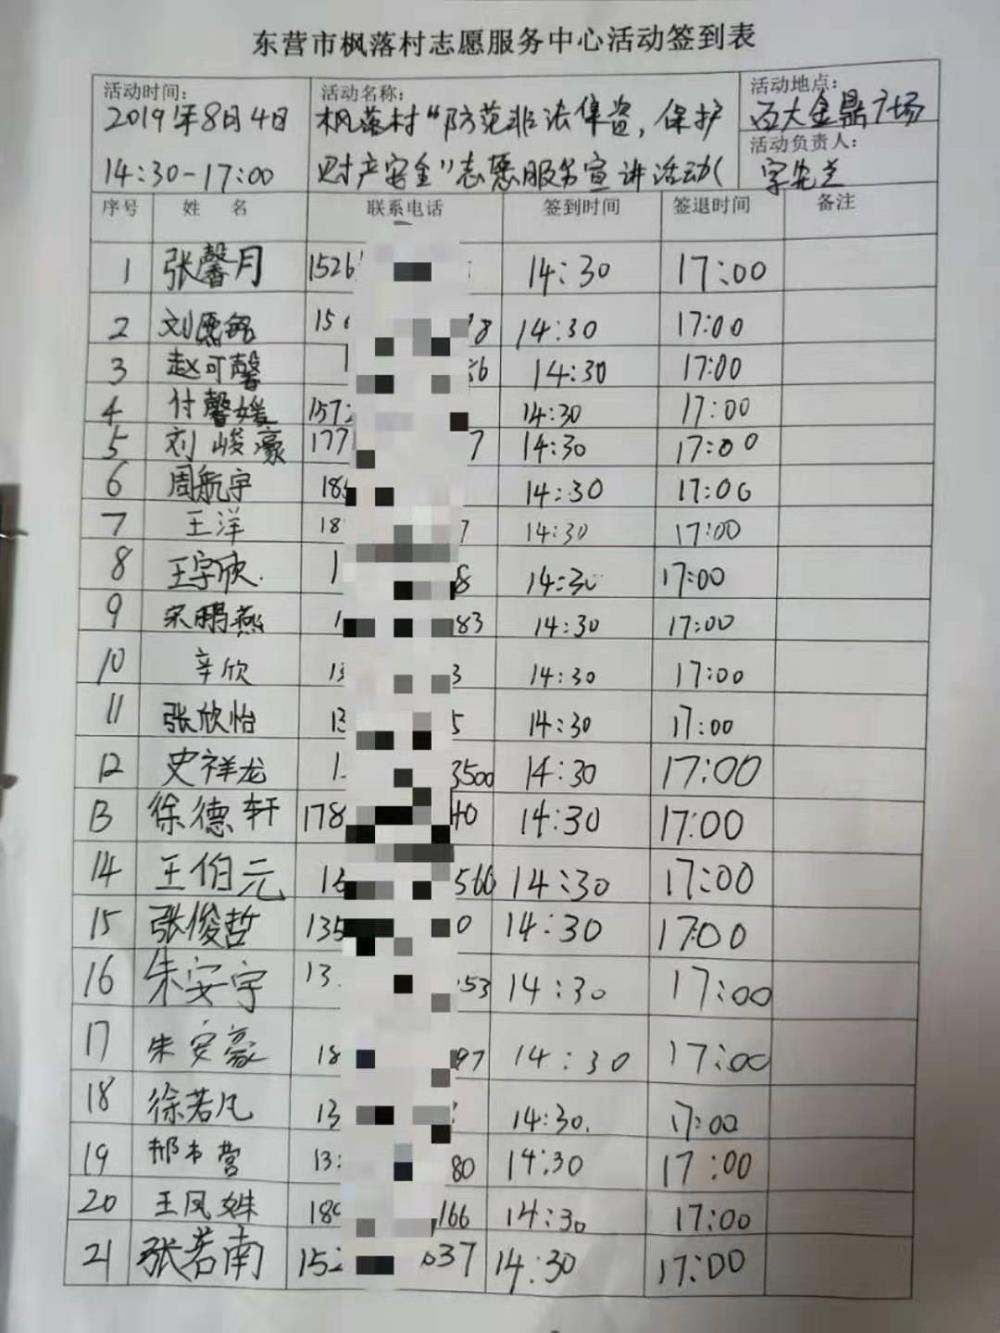 东营市枫落村志愿服务中心活动签到表
活动时间:
2019年8月4日
14:30-17:00
活动名称:
枫落村“防范非法集资，保护
财产安全”志愿服务宣讲活动(
活动地点:
百大金鼎广场
活动负责人:
序号 姓 名 联系电话 签到时间 签退时间 备注
1 张馨月 1526 14:30 17:00
2 刘愿铭 15 8 14:30 17:00
3 赵可馨 1 56 14:30 17:00
4 付馨媛 157 14:30 17:00
5 刘峻豪 177 7 14:30 17:00
6 周航宇 18 14:30 17:00
7 王洋 18 7 14:30 17:00
8 王宇欣. 1 8 14:30 17:00
9 宋鹏燕 1 83 14:30 17:00
10 辛欣 13 3 14:30 17:00
11 张欣怡 13 5 14:30 17:00
12 史祥龙 1 3500 14:30 17:00
13 徐德轩 178 40 14:30 17:00
14 王伯元 13 566 14:30 17:00
15 张俊哲 135 0 14:30 17:00
16 朱安宇 13 53 14:30 17:00
17 朱安豪 18 97 14:30 17:00
18 徐若凡 13 14:30. 17:00
19 13 80 14:30 17:00
20 王凤姝 18 166 14:30 17:00
21 张若南 152 037 14:30 17:00